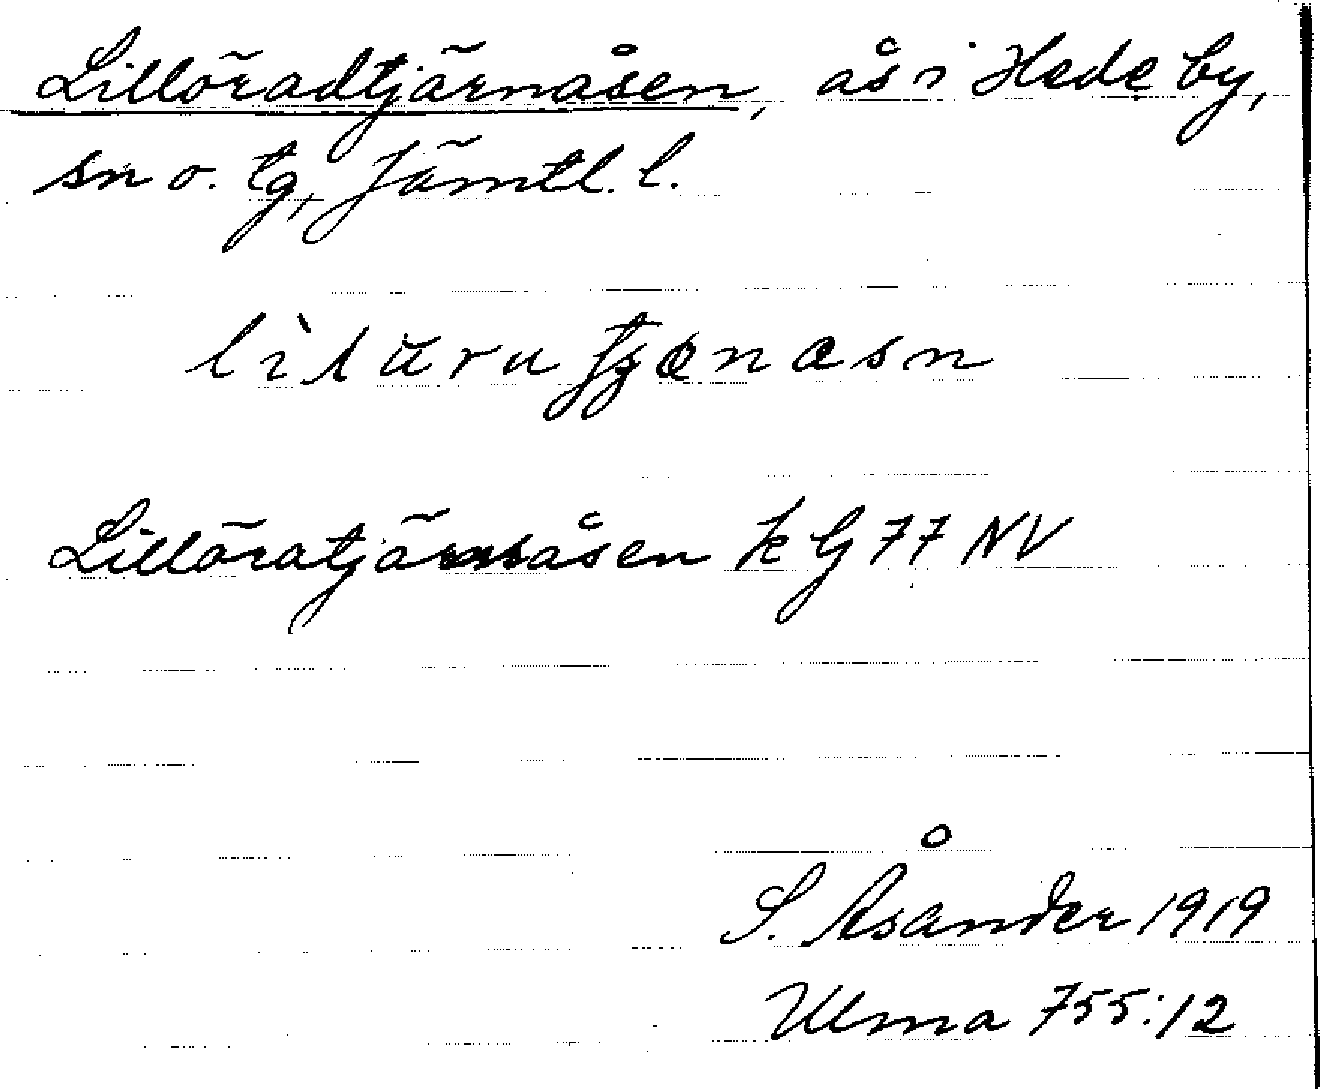 Lillöradtjärnåsen, ås i Hede by,
sn o. tg, Jämtl. l.
Lilloratjärnåsen k G 77 NV
S. Åsander 1919
Ulma 755:12